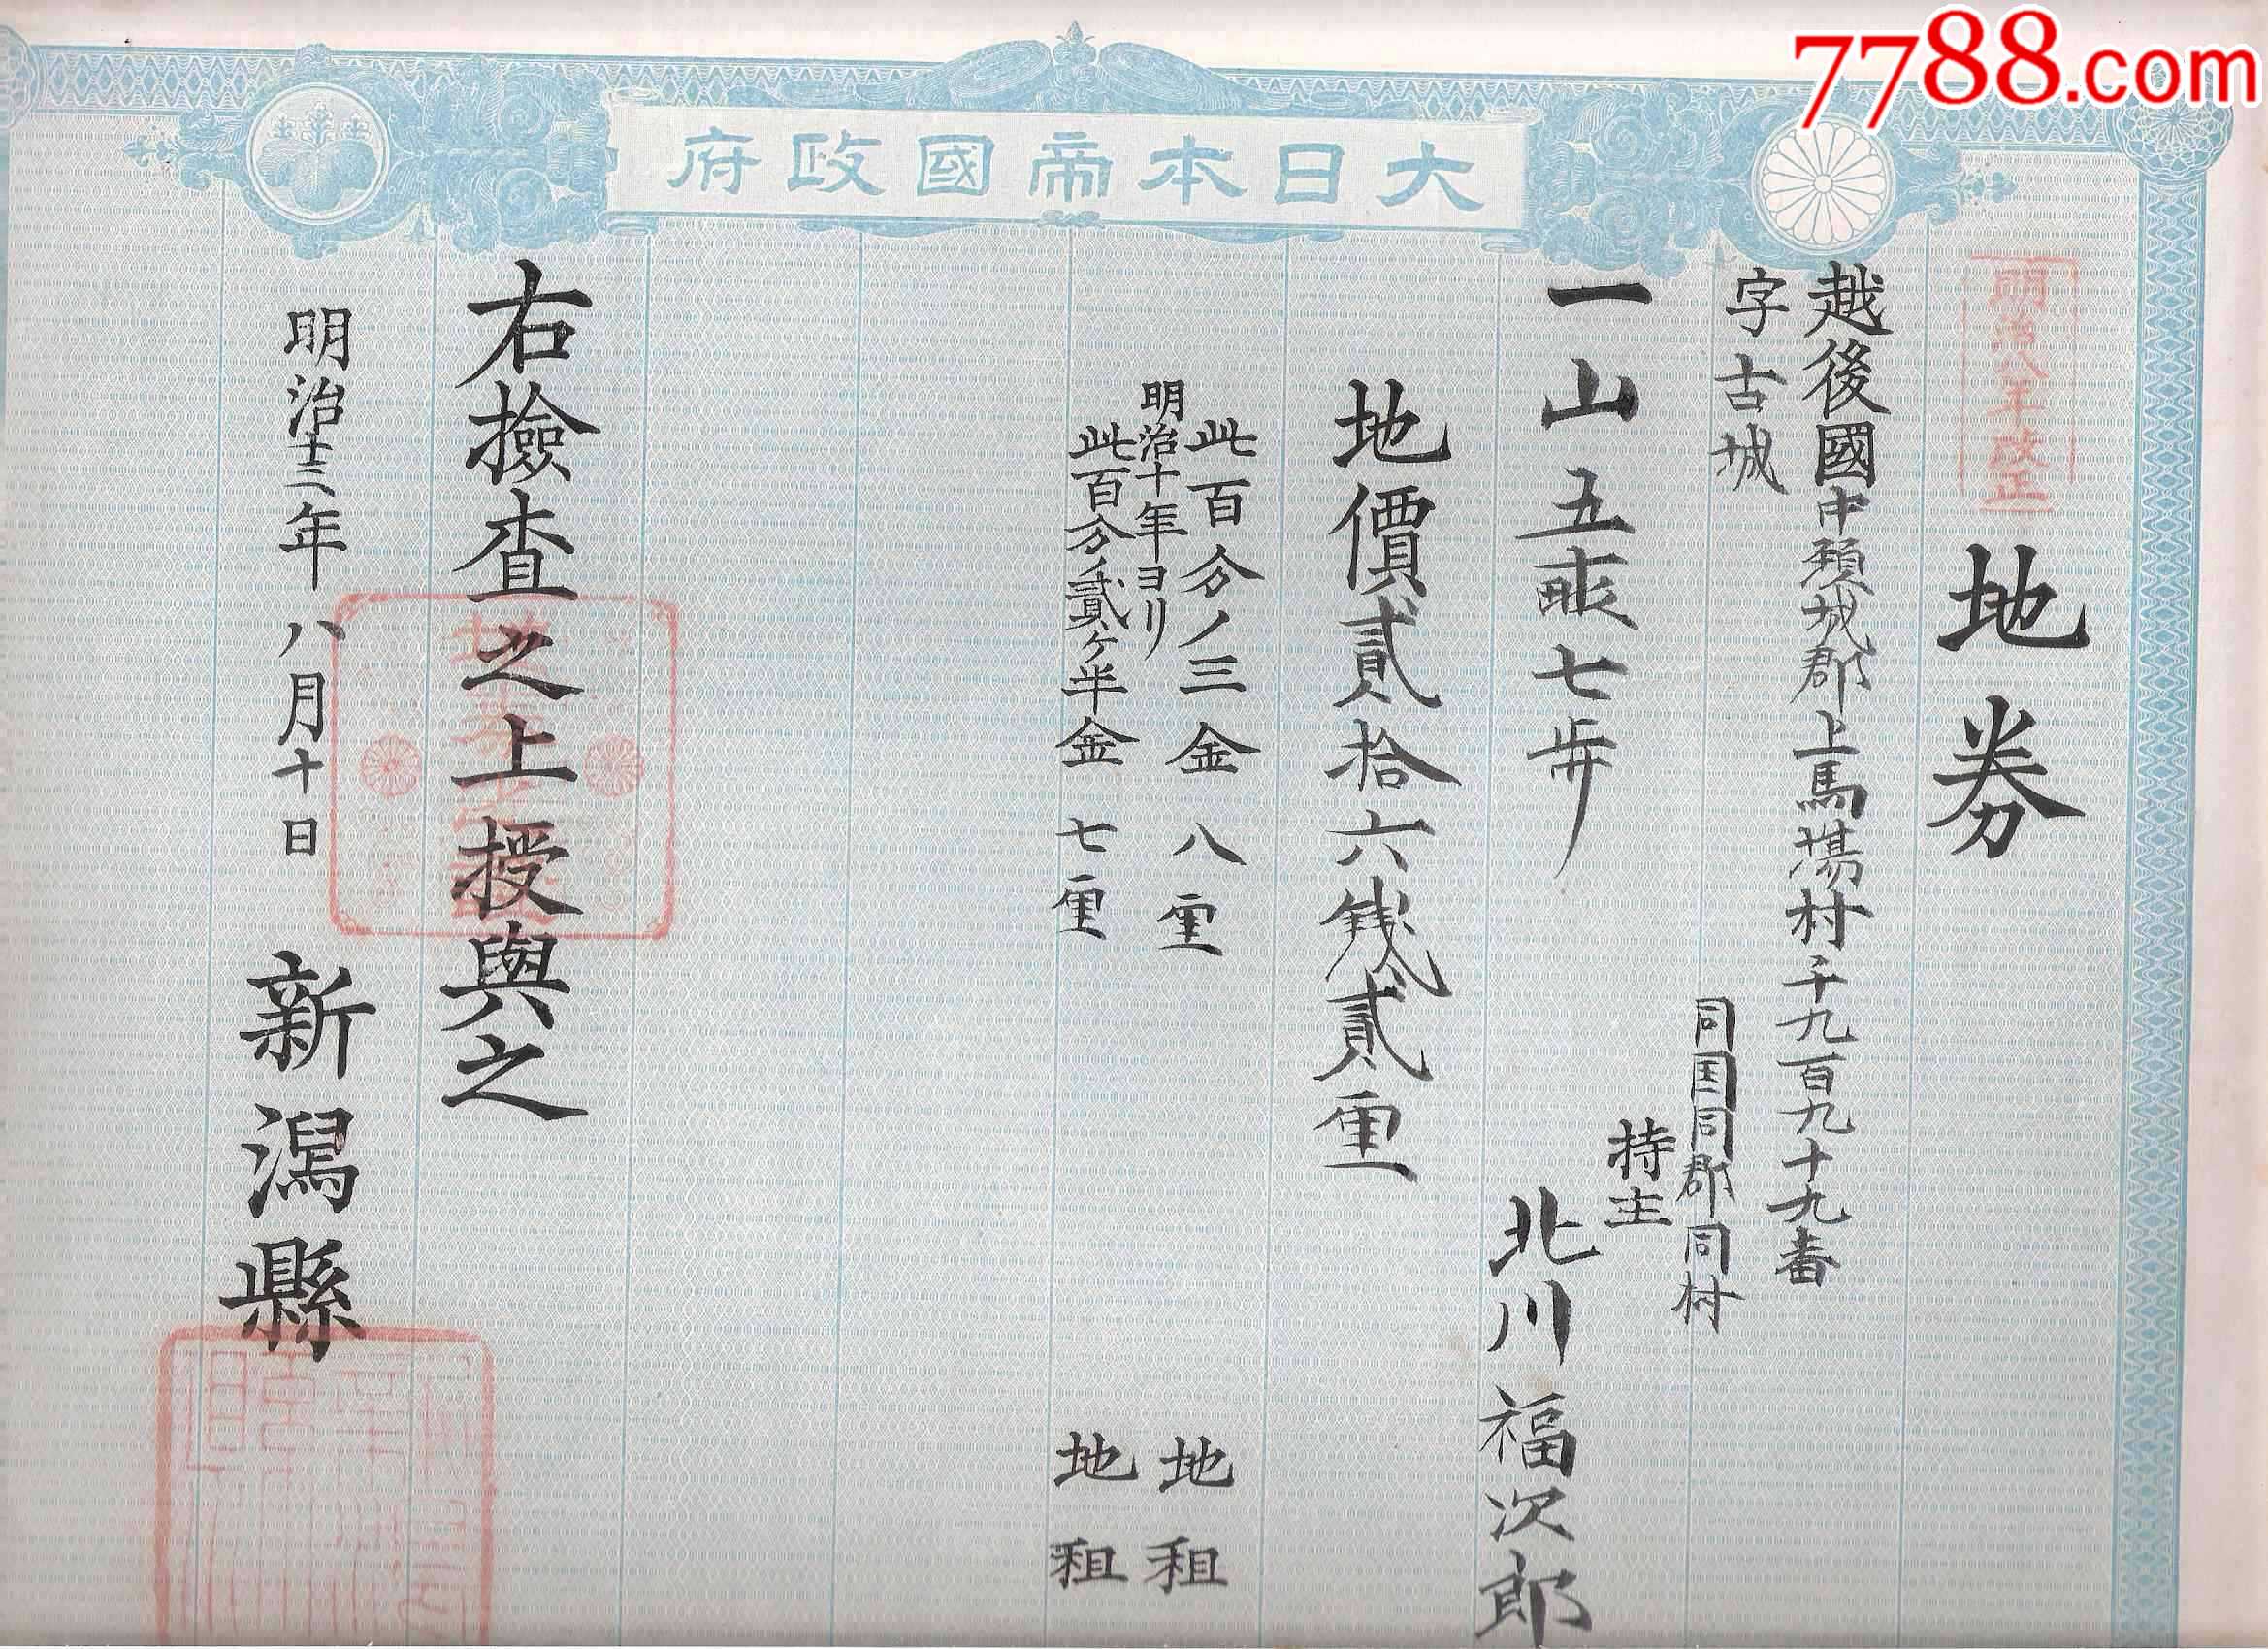 7788.com
大日本帝國政府
明治八年改正
地券
越後國中頚城郡上馬場村千九百九十九番
字古城
同国同郡同村
持主
北川福次郎
一山五畝七歩
地價貳拾六銭貳厘
此百分ノ三金八厘 地租
明治十年ヨリ
此百分ノ貳ケ半金七厘 地租
右撿査之上授與之
明治十三年八月十日 新潟縣